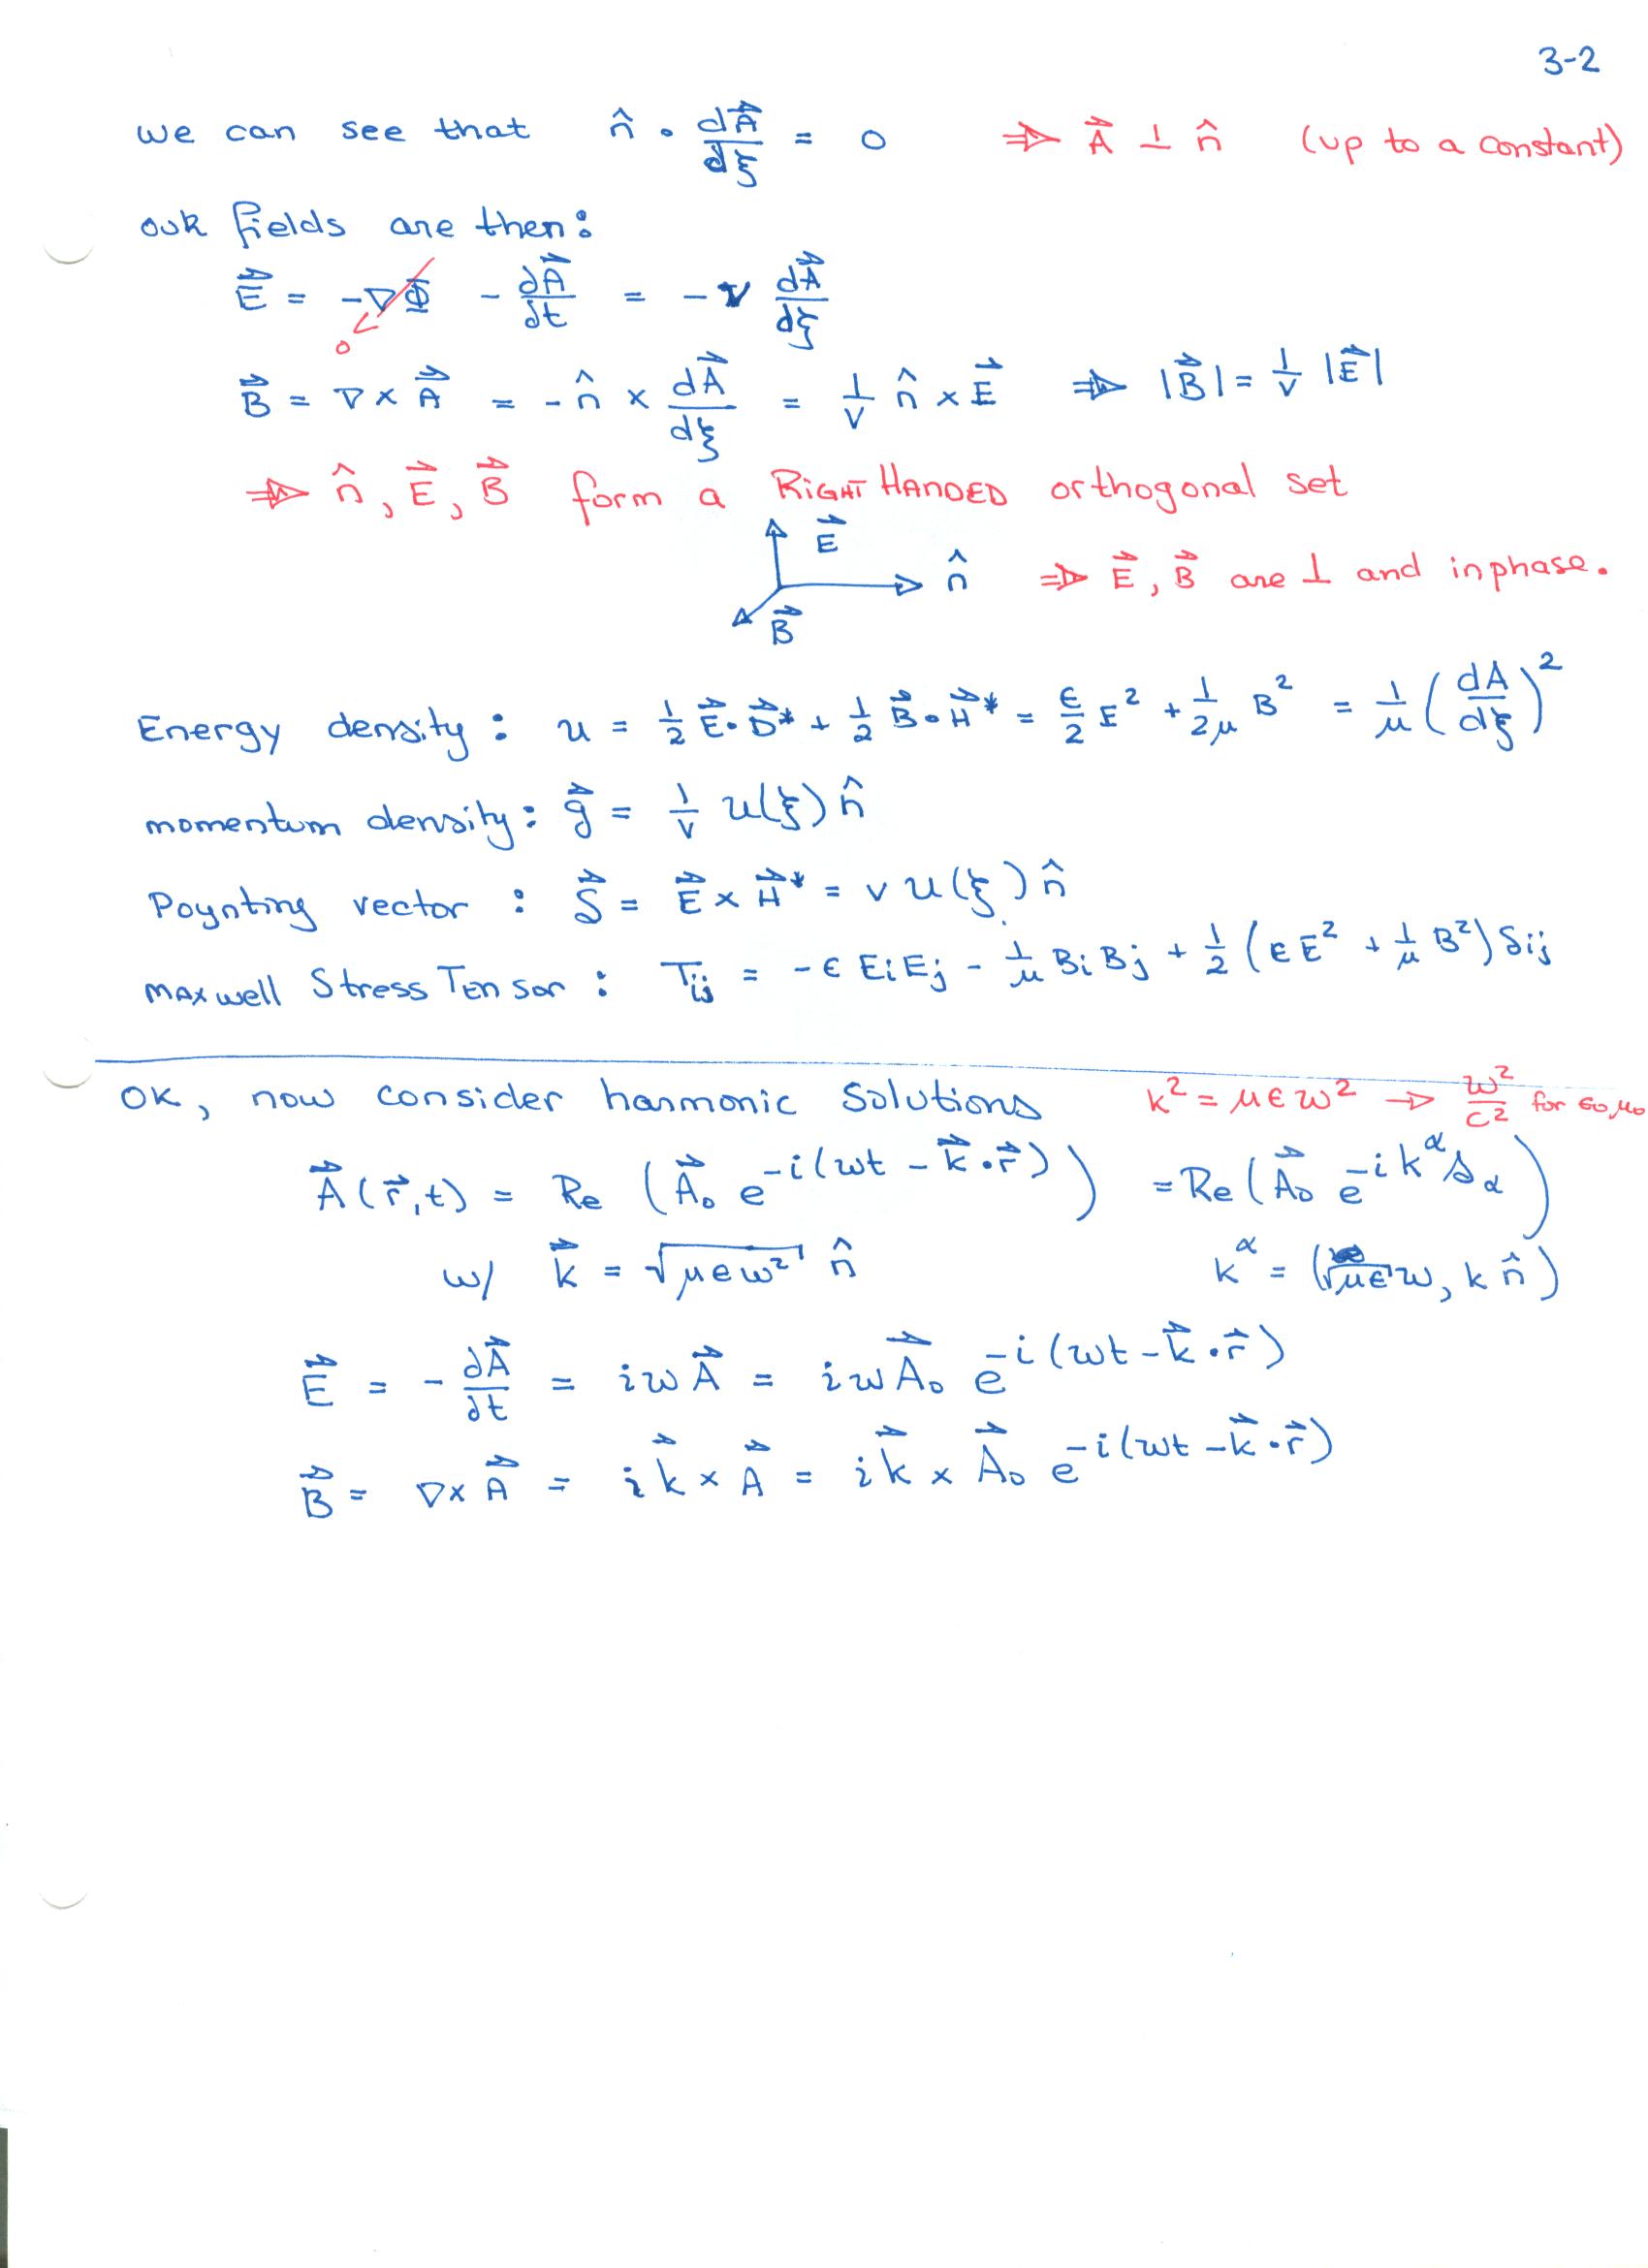 3-2
we can see that n̂ · dA⃗/dξ = 0 ⇒ A⃗ ⊥ n̂ (up to a constant)
our fields are then:
E⃗ = -∇Φ - ∂A⃗/∂t = -v dA⃗/dξ
0
B⃗ = ∇ × A⃗ = -n̂ × dA⃗/dξ = 1/v n̂ × E⃗ ⇒ |B⃗| = 1/v |E⃗|
⇒ n̂, E⃗, B⃗ form a RIGHT HANDED orthogonal set
E⃗
n̂ ⇒ E⃗, B⃗ are ⊥ and in phase.
B⃗
Energy density: u = 1/2 E⃗·D⃗* + 1/2 B⃗·H⃗* = ϵ/2 E² + 1/2μ B² = 1/μ (dA/dξ)²
momentum density: g⃗ = 1/v u(ξ) n̂
Poynting vector: S⃗ = E⃗ × H⃗* = v u(ξ) n̂
Maxwell Stress Tensor: Tij = -ϵ EiEj - 1/μ BiBj + 1/2 (ϵE² + 1/μ B²) δij
OK, now consider harmonic solutions k² = μϵω² → ω²/c² for ϵ0, μ0
A⃗(r⃗,t) = Re (A⃗₀ e^-i(ωt - k⃗·r⃗)) = Re (A⃗₀ e^-i k^α s_α)
w/ k⃗ = √μϵω² n̂ k^α = (√μϵ ω, k n̂)
E⃗ = -∂A⃗/∂t = iωA⃗ = iωA⃗₀ e^-i(ωt - k⃗·r⃗)
B⃗ = ∇× A⃗ = ik⃗ × A⃗ = ik⃗ × A⃗₀ e^-i(ωt - k⃗·r⃗)